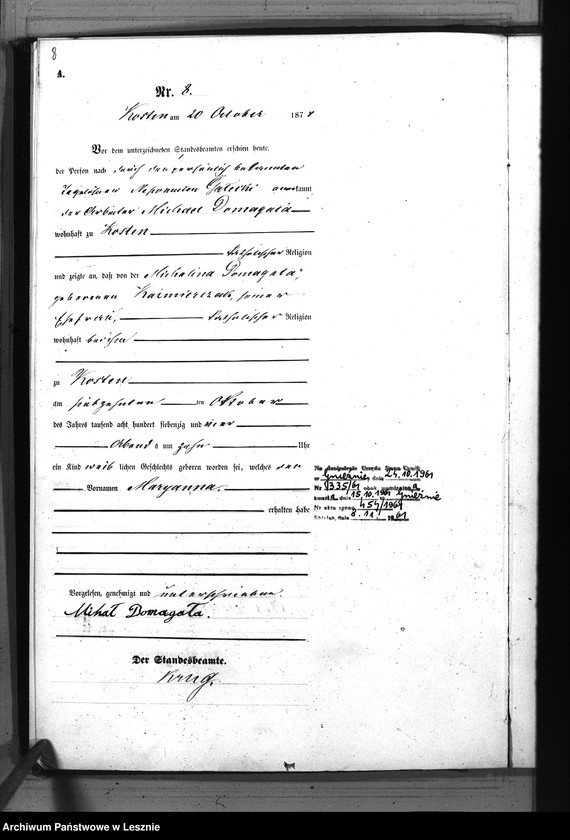 8
A.
Nr. 8.
Kosten am 20 October 1874
Vor dem unterzeichneten Standesbeamten erschien heute,
der Person nach durch den persönlich bekannten
Tagelöhner Nepomucen Galecki anerkannt
der Arbeiter Michael Domagała
wohnhaft zu Kosten
katholischer Religion
und zeigte an, daß von der Michalina Domagała,
geborenen Kazmierczak, seiner
Ehefrau, katholischer Religion
wohnhaft bei ihm
zu Kosten
am siebzehnten ten October
des Jahres tausend acht hundert siebenzig und vier
Abends um zehn Uhr
ein Kind weiblichen Geschlechts geboren worden sei, welches den
Vornamen Maryanna.
erhalten habe
Vorgelesen, genehmigt und unterschrieben
Mihał Domagała.
Der Standesbeamte.
Krug.
w Gnieźnie, dnia 24.10.1961
Nr 1335/61
zmarł a dnia 15.10.1961 w Gnieźnie
Nr aktu zgonu 454/1961
dnia 8.11. 1961
Archiwum Państwowe w Lesznie